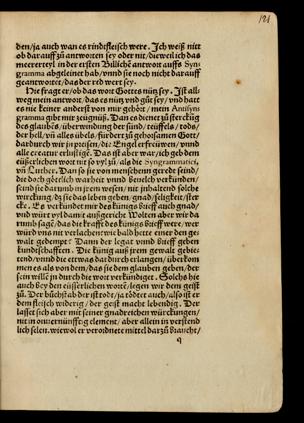 121
den/ja auch wan es rindtfleisch were. Ich weiß nitt
ob darauff zů antworten sey oder nit/dieweil ich das
meererteyl in der ersten Billiche antwort auffs Syn-
gramma abgeleinet hab/vnnd sie noch nicht darauff
geantwortet/das der red wert sey.
Hie fragt er/ob das wort Gottes nütz sey. Ist all-
weg mein antwort/das es nütz vnd gůt sey/vnd hatt
es nie keiner anderst von mir gehört/mein Antisyn-
gramma gibt mir zeügnüß. Dan es dienet zů sterckũg
des glaubẽs/überwindung der sünd/teüffels/tods/
der hell/vñ alles übels. fürdert zů gehorsamen Gott/
dardurch wir jn preisen/die Engel erfreüwen/vnnd
alle creatur erlustigẽ. Das ist aber war/ich geb dem
eüsserlichen wort nit so vyl zů/als die Syngrammatici,
vñ Luther. Dan so sie von menschenn geredt seind/
die doch götlich warheit vnnd beuelch verkünden/
seind sie darumb in jrem wesen/nit jnhaltend solche
würckung/dz sie das leben geben/gnad/seligkeit/ster
cke. Es verkündet mir des künigs brieff auch gnad/
vnd würt vyl damit außgericht Wolten aber wir da
rumb sagẽ/das die krafft des künigs brieff were/wer
würd vns nit verlachen/wie bald hette einer den ge-
walt gedempt? Dann der legat vnnd brieff geben
kundtschafften. Die künig auß jrem gewalt gebie-
tend/vnnd die ettwas dardurch erlangen/überkom
men es als von dem/das sie dem glauben geben/der
sein wille jn durch die wort verkündiget. Solchs hie
auch bey den eüsserlichen wortẽ/legen wir dem geist
zů. Der bůchstab der ist todt/ja tödtet auch/also ist er
dem fleisch widerig/der geist macht lebendig. Der
lasset sich aber mit seiner gnadreichen würckungen/
nit in onuernünfftig element/aber allein in verstend
lich selen. wiewol er verordnete mittel darzů braucht/
q